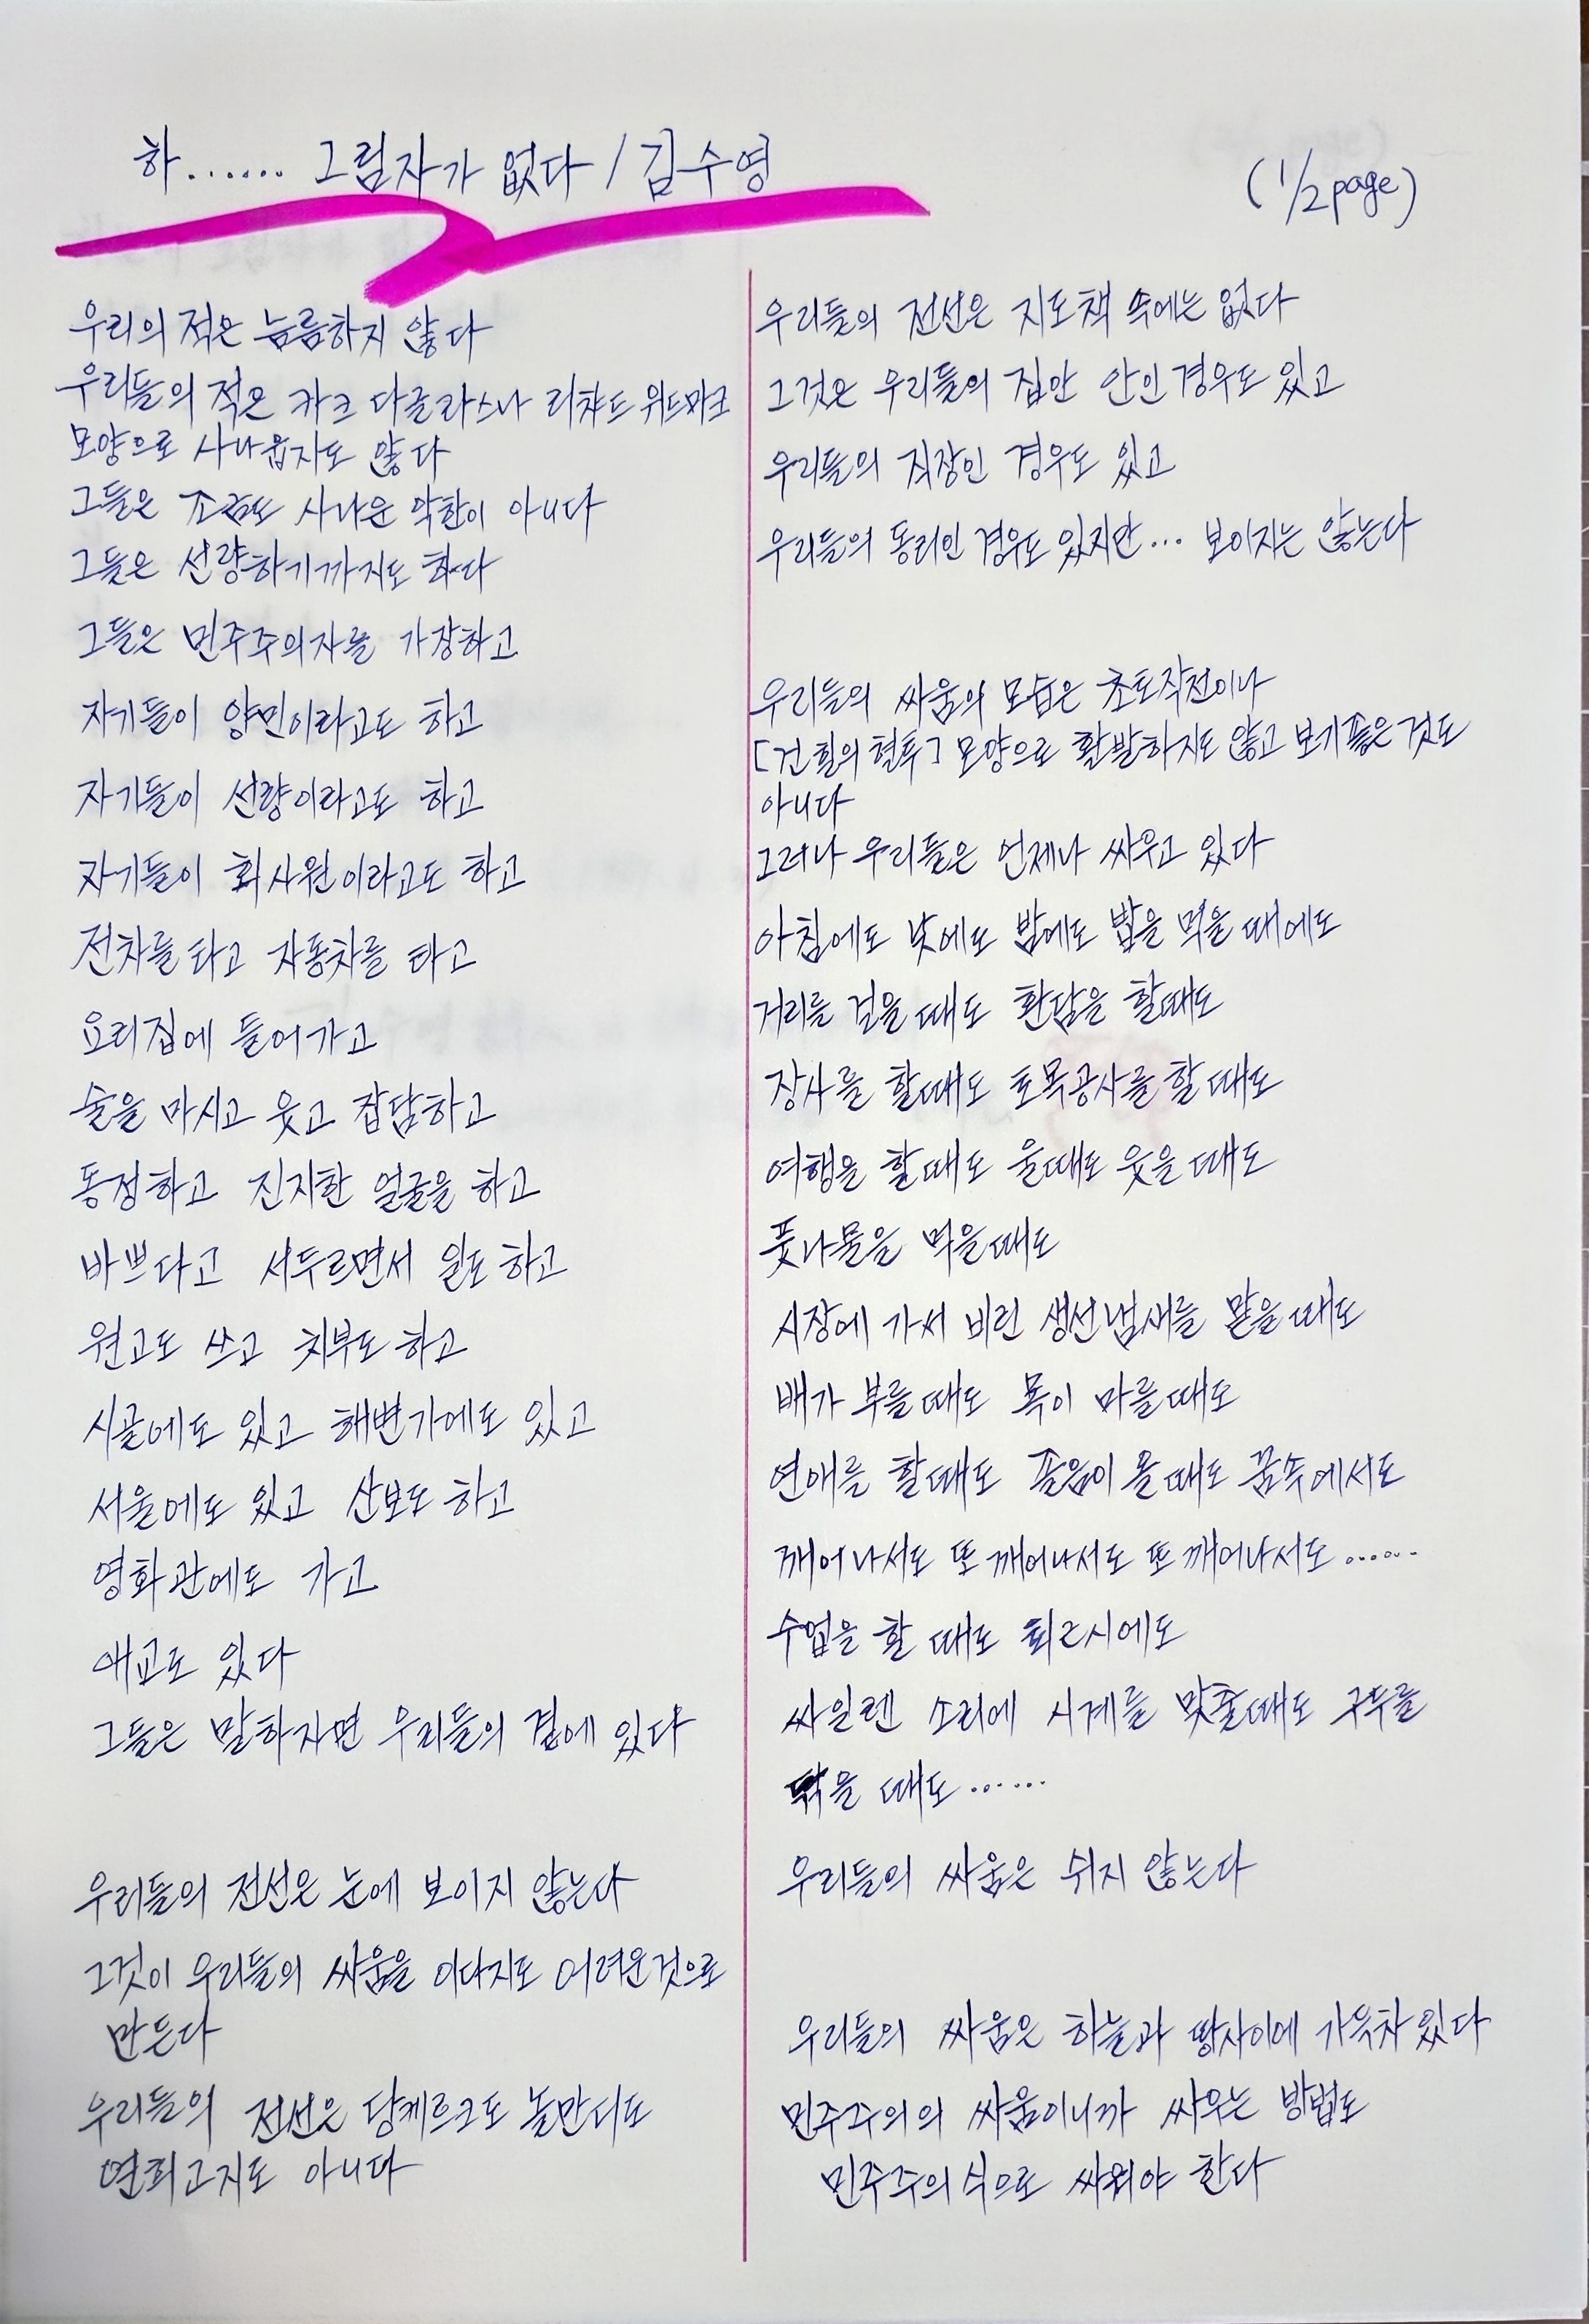 하...... 그림자가 없다 / 김수영
(1/2 page)
우리의 적은 늠름하지 않다
우리들의 적은 카크 다글라스나 리챠드 위드마크
모양으로 사나웁지도 않다
그들은 조금도 사나운 악한이 아니다
그들은 선량하기까지도 하다
그들은 민주주의자를 가장하고
자기들이 양민이라고도 하고
자기들이 선량이라고도 하고
자기들이 회사원이라고도 하고
전차를 타고 자동차를 타고
요리집에 들어가고
술을 마시고 웃고 잡담하고
동정하고 진지한 얼굴을 하고
바쁘다고 서두르면서 일도 하고
원고도 쓰고 치부도 하고
시골에도 있고 해변가에도 있고
서울에도 있고 산보도 하고
영화관에도 가고
애교도 있다
그들은 말하자면 우리들의 곁에 있다
우리들의 전선은 눈에 보이지 않는다
그것이 우리들의 싸움을 이다지도 어려운것으로
만든다
우리들의 전선은 당케르크도 놀만디도
연희고지도 아니다
우리들의 전선은 지도책 속에는 없다
그것은 우리들의 집안 안인 경우도 있고
우리들의 직장인 경우도 있고
우리들의 동리인 경우도 있지만... 보이지는 않는다
우리들의 싸움의 모습은 초토작전이나
[건 힐의 혈투] 모양으로 활발하지도 않고 보기좋은 것도
아니다
그러나 우리들은 언제나 싸우고 있다
아침에도 낮에도 밤에도 밥을 먹을 때에도
거리를 걸을 때도 환담을 할때도
장사를 할때도 토목공사를 할 때도
여행을 할때도 울때도 웃을 때도
풋나물을 먹을때도
시장에 가서 비린 생선냄새를 맡을 때도
배가 부를때도 목이 마를때도
연애를 할때도 졸음이 올때도 꿈속에서도
깨어나서도 또 깨어나서도 또 깨어나서도......
수업을 할 때도 퇴근시에도
싸일렌 소리에 시계를 맞출때도 구두를
닦을 때도......
우리들의 싸움은 쉬지 않는다
우리들의 싸움은 하늘과 땅사이에 가득차 있다
민주주의의 싸움이니까 싸우는 방법도
민주주의식으로 싸워야 한다